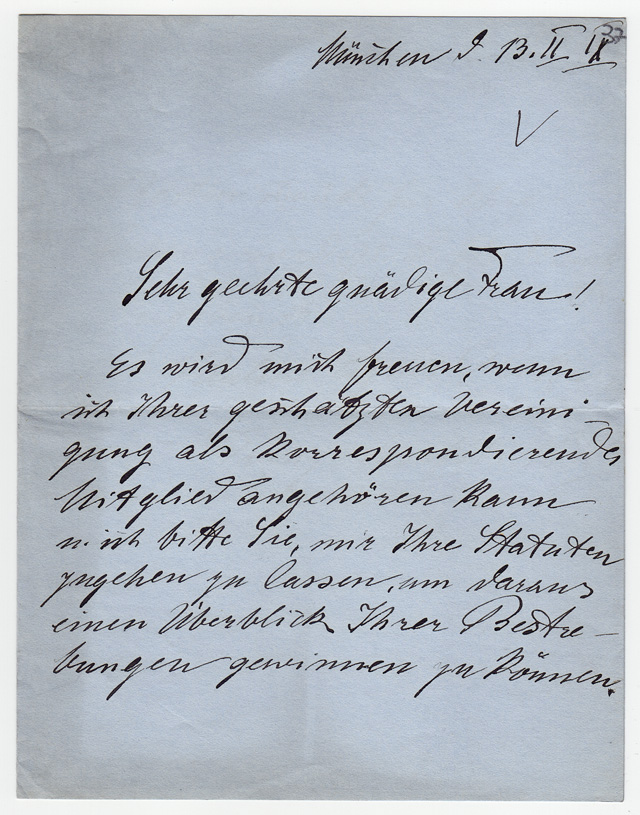 München d. 13. II IX
37
Sehr geehrte gnädige Frau!
Es wird mich freuen, wenn
ich Ihrer geschätzten Vereini-
gung als korrespondierendes
Mitglied angehören kann
u. ich bitte Sie, mir Ihre Statuten
zugehen zu lassen, um daraus
einen Überblick Ihrer Bestre-
bungen gewinnen zu können.